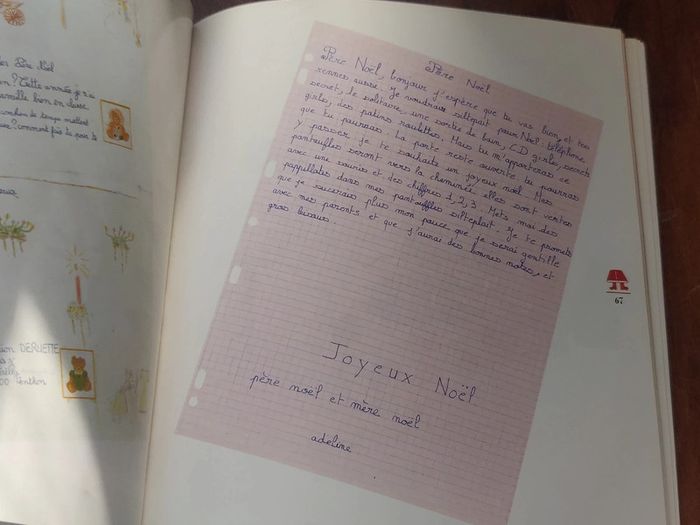 Père Noël
ien ? Cette année je n'ai
travaille bien en classe.
combien de temps mettent
Père Noël
Père Noël, bonjour j'espère que tu vas bien, et tes
rennes aussi. Je voudrais silteplait pour Noël : téléphone
secret, le solitaire, une sortie de bain, CD girls, secrets
girls, des patins roulettes. Mais tu m'apporteras ce
que tu pourras. La porte reste ouverte tu pourras
y passer je te souhaite un joyeux noël. Mes
pantouffles seront vers la cheminée, elles sont vertes
avec une souris et des chiffres 1, 2, 3. Mets moi des
papillotes dans mes pantouffles silteplait. Je te promets
que je sucerais plus mon pouce que je serai gentille
avec mes parents et que j'aurai des bonnes notes, et
gros bisous.
Joyeux Noël
père noël et mère noël
adeline
67